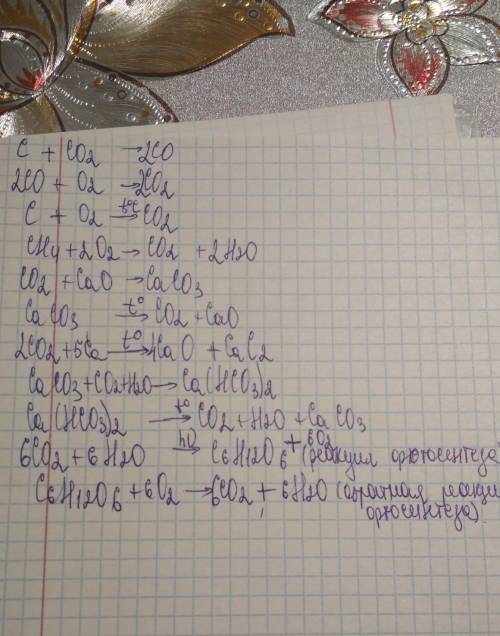 C + CO2 → 2CO
2CO + O2 → 2CO2
C + O2 t°C→ CO2
CH4 + 2O2 → CO2 + 2H2O
CO2 + CaO → CaCO3
CaCO3 t°→ CO2 + CaO
2CO2 + 5Ca t°→ 4CaO + CaC2
CaCO3 + CO2 + H2O → Ca(HCO3)2
Ca(HCO3)2 t°→ CO2 + H2O + CaCO3
6CO2 + 6H2O hν→ C6H12O6 + 6O2 (реакция фотосинтеза)
C6H12O6 + 6O2 → 6CO2 + 6H2O (обратная реакци
фотосинтеза)